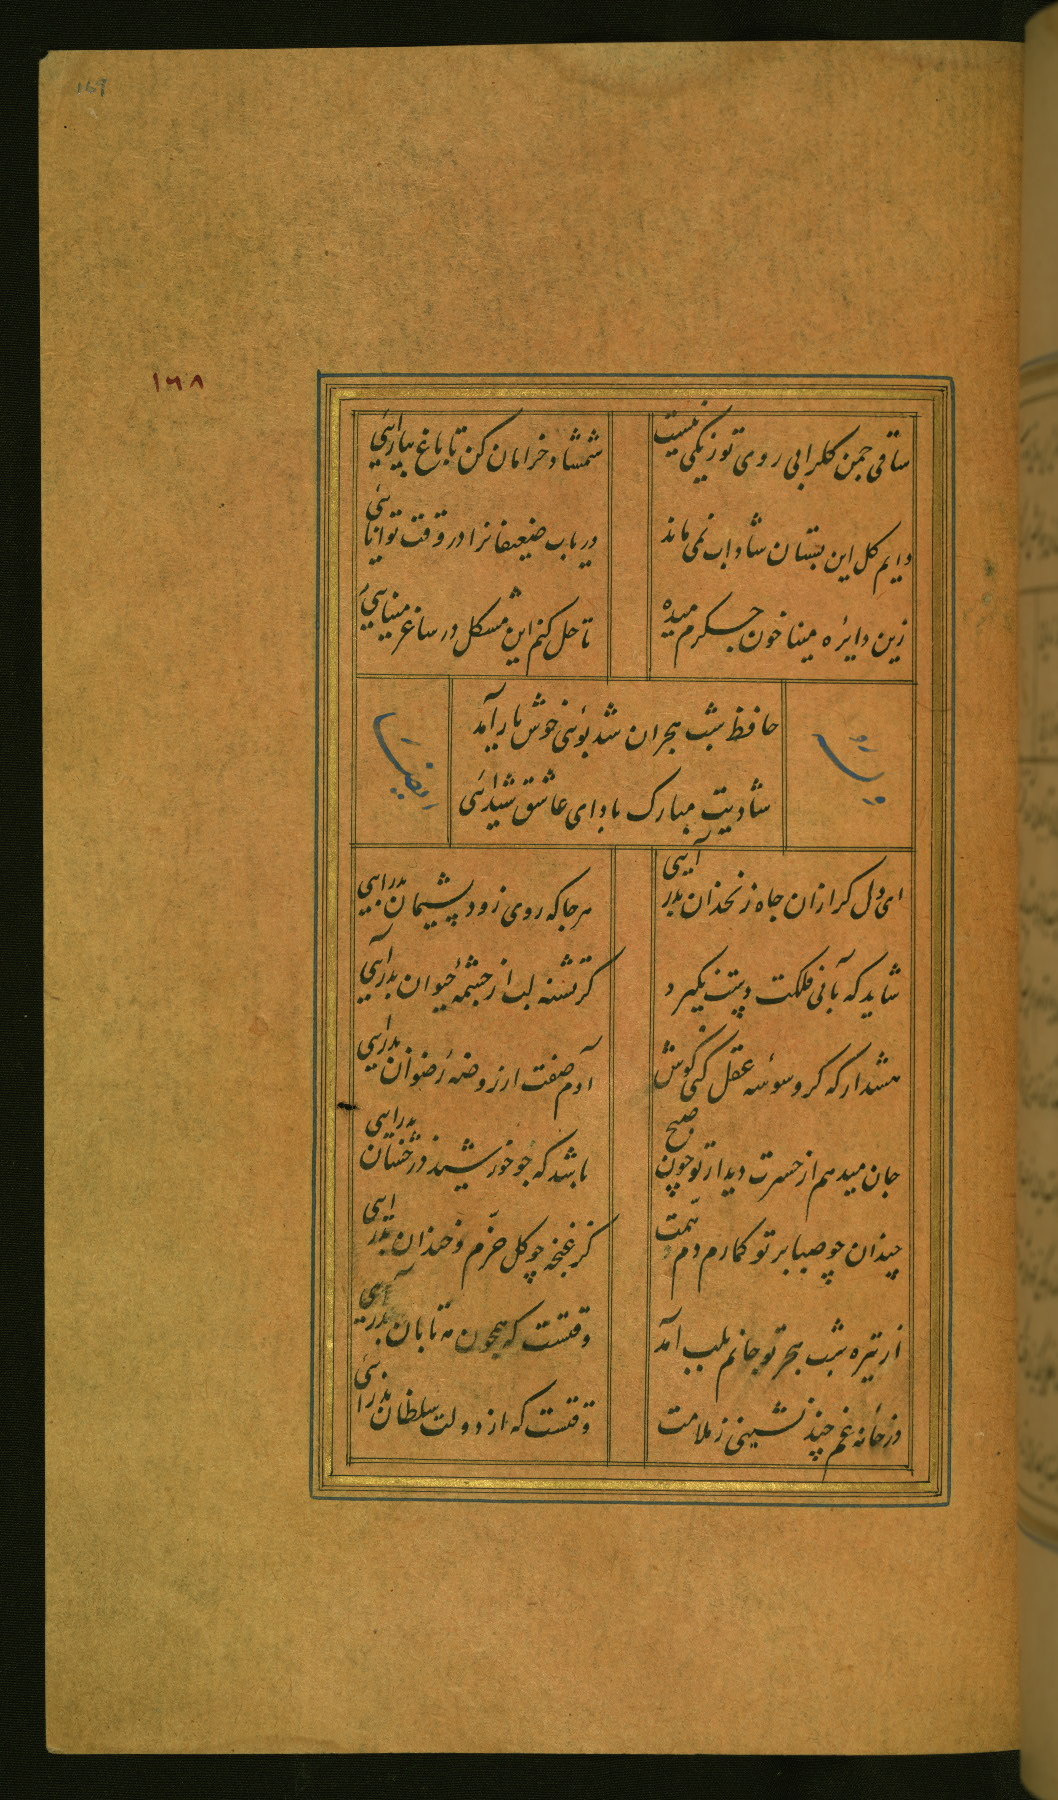 ١٦٩
١٦٨
ساقی چمن کلرا بی روی تو رنکی نیست
شمشاد خرامان کن تا باغ بیارائی
دایم کل این بستان شاداب نمی ماند
دریاب ضیعفانرا در وقت توانائی
زین دایره مینا خون جکرم میده
تا حل کنم این مشکل در ساغر مینایی
حافظ شب هجران شد بوئی خوش یار آمد
شادیت مبارک باد ای عاشق شیدائی
وله ایضا
ای دل کر ازان جاه زنخدان بدر آیی
هر جا که روی زود پشیمان بدر آیی
شاید که بآبی فلکت دست نکیرد
کر تشنه لب از چشمهٔ حیوان بدر آیی
هشدار که کر وسوسهٔ عقل کنی کوش
آدم صفت از روضهٔ رضوان بدر آیی
جان میدهم از حسرت دیدار تو چون صبح
باشد که چو خورشید درخشان بدر آیی
چندان چو صبا بر تو کمارم دم همت
کز غنچه چو کل خرّم و خندان بدر آیی
از تیره شب هجر تو جانم بلب آمد
وقتست که همچون مه تابان بدر آیی
در خانه غم چند نشینی ز ملامت
وقتست که از دولت سلطان بدر آئی